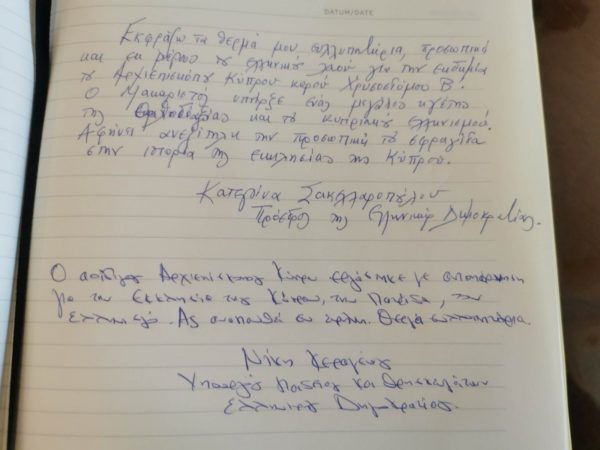 DATUM/DATE
Εκφράζω τα θερμά μου συλλυπητήρια, προσωπικά
και εκ μέρους του ελληνικού λαού για την εκδημία
του Αρχιεπισκόπου Κύπρου κυρού Χρυσοστόμου Β'.
Ο Μακαριστός υπήρξε ένας μεγάλος ηγέτης
της Ορθοδοξίας και του κυπριακού ελληνισμού.
Αφήνει ανεξίτηλη την προσωπική του σφραγίδα
στην ιστορία της εκκλησίας της Κύπρου.
Κατερίνα Σακελλαροπούλου
Πρόεδρος της Ελληνικής Δημοκρατίας.
Ο αοίδιμος Αρχιεπίσκοπος Κύπρου εργάστηκε με αυταπάρνηση
για την Εκκλησία της Κύπρου, την Παιδεία, τον
Ελληνισμό. Ας αναπαυθεί εν ειρήνη. Θερμά συλλυπητήρια.
Νίκη Κεραμέως
Υπουργός Παιδείας και Θρησκευμάτων
Ελληνικής Δημοκρατίας.